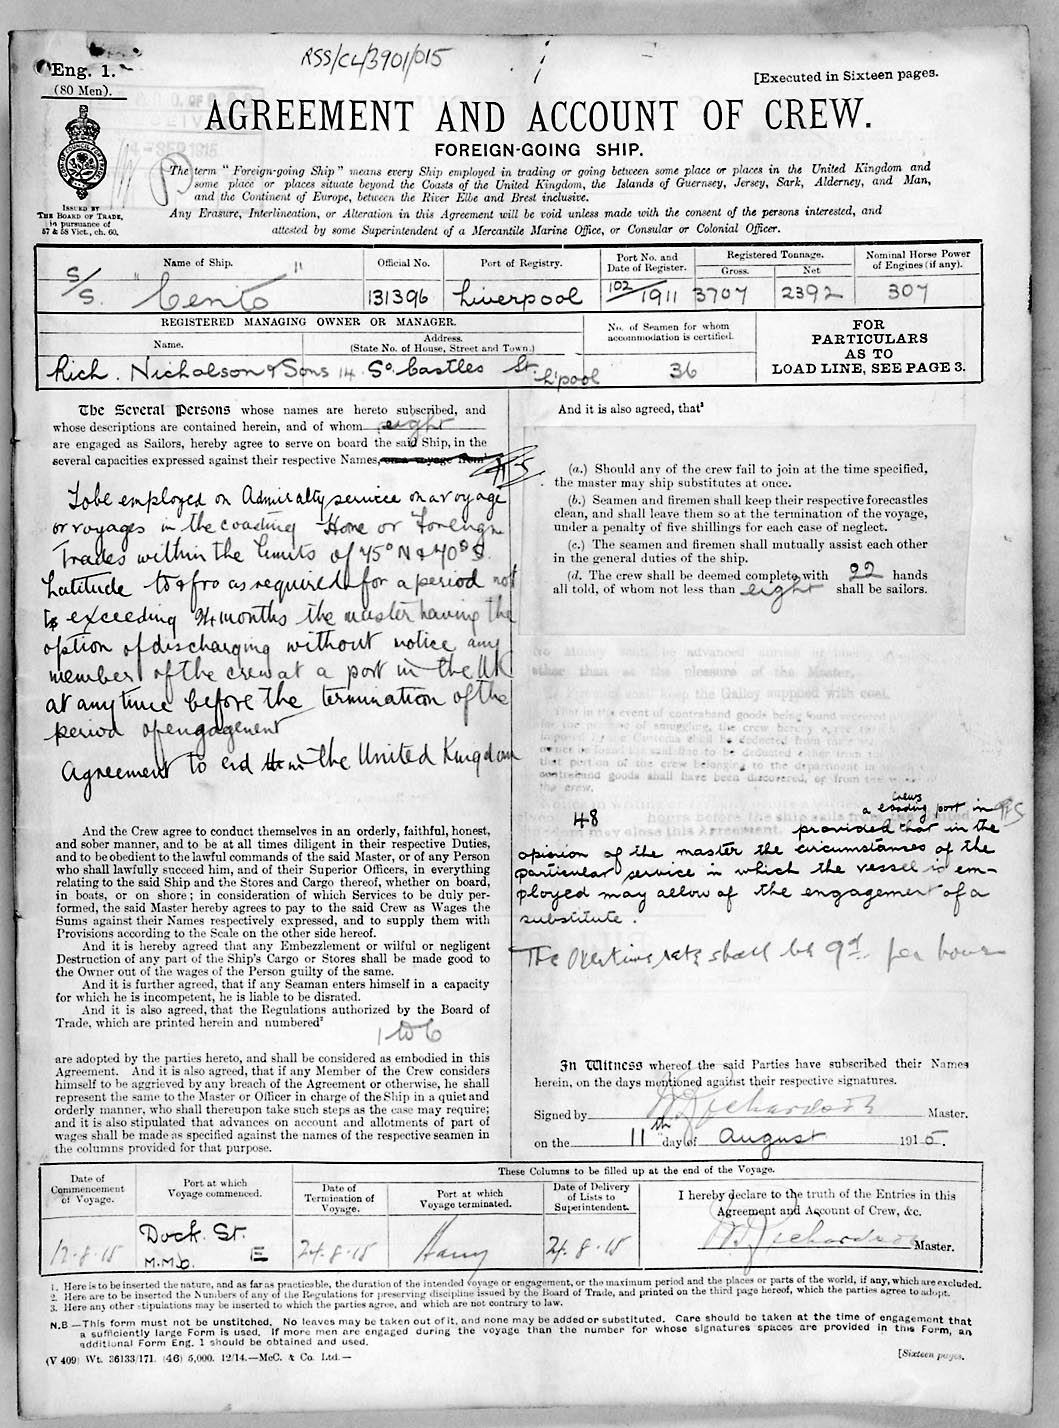 RSS/CL/3901/015
Eng. 1.
(80 Men).
[Executed in Sixteen pages.
AGREEMENT AND ACCOUNT OF CREW.
FOREIGN-GOING SHIP.
ISSUED BY
THE BOARD OF TRADE,
in pursuance of
57 & 58 Vict., ch. 60.
The term "Foreign-going Ship" means every Ship employed in trading or going between some place or places in the United Kingdom and
some place or places situate beyond the Coasts of the United Kingdom, the Islands of Guernsey, Jersey, Sark, Alderney, and Man,
and the Continent of Europe, between the River Elbe and Brest inclusive.
Any Erasure, Interlineation, or Alteration in this Agreement will be void unless made with the consent of the persons interested, and
attested by some Superintendent of a Mercantile Marine Office, or Consular or Colonial Officer.
Name of Ship.
Official No.
Port of Registry.
Port No. and
Date of Register.
Registered Tonnage.
Gross.
Net
Nominal Horse Power
of Engines (if any).
S/S. "Cento"
131396
Liverpool
102/1911
3707
2392
307
REGISTERED MANAGING OWNER OR MANAGER.
Name.
Address.
(State No. of House, Street and Town.)
No. of Seamen for whom
accommodation is certified.
FOR
PARTICULARS
AS TO
LOAD LINE, SEE PAGE 3.
Rich. Nicholson & Sons 14 So. Castles St. L'pool
36
The Several Persons whose names are hereto subscribed, and
whose descriptions are contained herein, and of whom eight
are engaged as Sailors, hereby agree to serve on board the said Ship, in the
several capacities expressed against their respective Names, on a voyage from¹
To be employed on Admiralty service on a voyage
or voyages in the coasting Home or Foreign
Trades within the limits of 75° N & 70° S.
Latitude to & fro as required for a period not
exceeding 24 months the master having the
option of discharging without notice any
member of the crew at a port in the UK
at any time before the termination of the
period of engagement
Agreement to end in the United Kingdom
And the Crew agree to conduct themselves in an orderly, faithful, honest,
and sober manner, and to be at all times diligent in their respective Duties,
and to be obedient to the lawful commands of the said Master, or of any Person
who shall lawfully succeed him, and of their Superior Officers, in everything
relating to the said Ship and the Stores and Cargo thereof, whether on board,
in boats, or on shore; in consideration of which Services to be duly per-
formed, the said Master hereby agrees to pay to the said Crew as Wages the
Sums against their Names respectively expressed, and to supply them with
Provisions according to the Scale on the other side hereof.
And it is hereby agreed that any Embezzlement or wilful or negligent
Destruction of any part of the Ship's Cargo or Stores shall be made good to
the Owner out of the wages of the Person guilty of the same.
And it is further agreed, that if any Seaman enters himself in a capacity
for which he is incompetent, he is liable to be disrated.
And it is also agreed, that the Regulations authorized by the Board of
Trade, which are printed herein and numbered²
1 to 6
are adopted by the parties hereto, and shall be considered as embodied in this
Agreement. And it is also agreed, that if any Member of the Crew considers
himself to be aggrieved by any breach of the Agreement or otherwise, he shall
represent the same to the Master or Officer in charge of the Ship in a quiet and
orderly manner, who shall thereupon take such steps as the case may require;
and it is also stipulated that advances on account and allotments of part of
wages shall be made as specified against the names of the respective seamen in
the columns provided for that purpose.
And it is also agreed, that³
(a.) Should any of the crew fail to join at the time specified,
the master may ship substitutes at once.
(b.) Seamen and firemen shall keep their respective forecastles
clean, and shall leave them so at the termination of the voyage,
under a penalty of five shillings for each case of neglect.
(c.) The seamen and firemen shall mutually assist each other
in the general duties of the ship.
(d. The crew shall be deemed complete with 22 hands
all told, of whom not less than eight shall be sailors.
48 hours
a crews loading port in
provided that in the
opinion of the master the circumstances of the
particular service in which the vessel is em-
ployed may allow of the engagement of a
substitute.
The Overtime rate shall be 9d. per hour
In Witness whereof the said Parties have subscribed their Names
herein, on the days mentioned against their respective signatures.
Signed by W Richardson Master.
on the 11th day of August 1915.
These Columns to be filled up at the end of the Voyage.
Date of
Commencement
of Voyage.
Port at which
Voyage commenced.
Date of
Termination of
Voyage.
Port at which
Voyage terminated.
Date of Delivery
of Lists to
Superintendent.
I hereby declare to the truth of the Entries in this
Agreement and Account of Crew, &c.
12-8-15
Dock St.
M.M.O. E
24-8-15
24.8.15
W Richardson Master.
1. Here is to be inserted the nature, and as far as practicable, the duration of the intended voyage or engagement, or the maximum period and the places or parts of the world, if any, which are excluded.
2. Here are to be inserted the Numbers of any of the Regulations for preserving discipline issued by the Board of Trade, and printed on the third page hereof, which the parties agree to adopt.
3. Here any other stipulations may be inserted to which the parties agree, and which are not contrary to law.
N.B—This form must not be unstitched. No leaves may be taken out of it, and none may be added or substituted. Care should be taken at the time of engagement that
a sufficiently large Form is used. If more men are engaged during the voyage than the number for whose signatures spaces are provided in this Form, an
additional Form Eng. 1 should be obtained and used.
(V 409) Wt. 36133/171. (46) 5,000. 12/14.—McC. & Co. Ltd.—
[Sixteen pages.